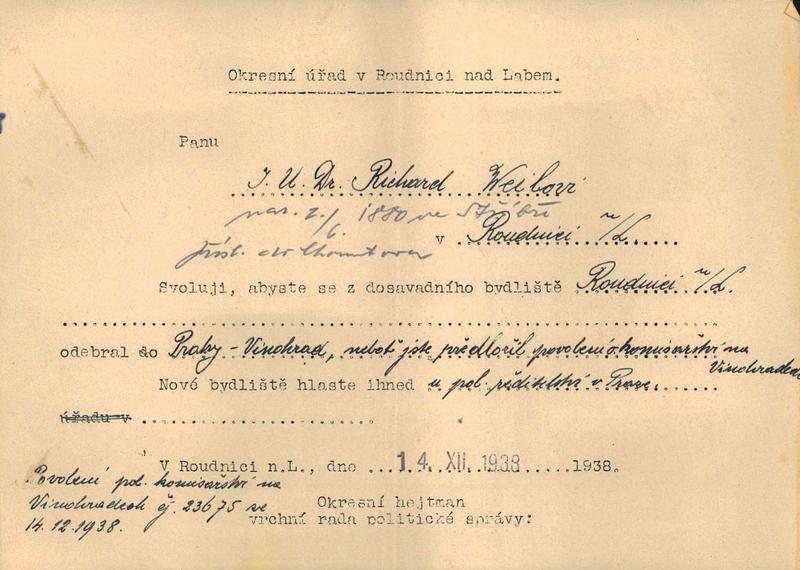 Okresní úřad v Roudnici nad Labem.
Panu
J. U. Dr. Richard Weilovi
nar. 2./6. 1880 ve Stříbře
přísl. do Chomutova
v Roudnici n/L.
Svoluji, abyste se z dosavadního bydliště Roudnici n/L.
odebral do Prahy - Vinohrad, neboť jste předložil povolení komisařství na Vinohradech
Nové bydliště hlaste ihned u pol. ředitelství v Praze.
úřadu v
V Roudnici n.L., dne 14 XII 1938 1938.
Povolení pol. komisařství na
Vinohradech čj. 23675 ve
14.12.1938.
Okresní hejtman
vrchní rada politické správy: